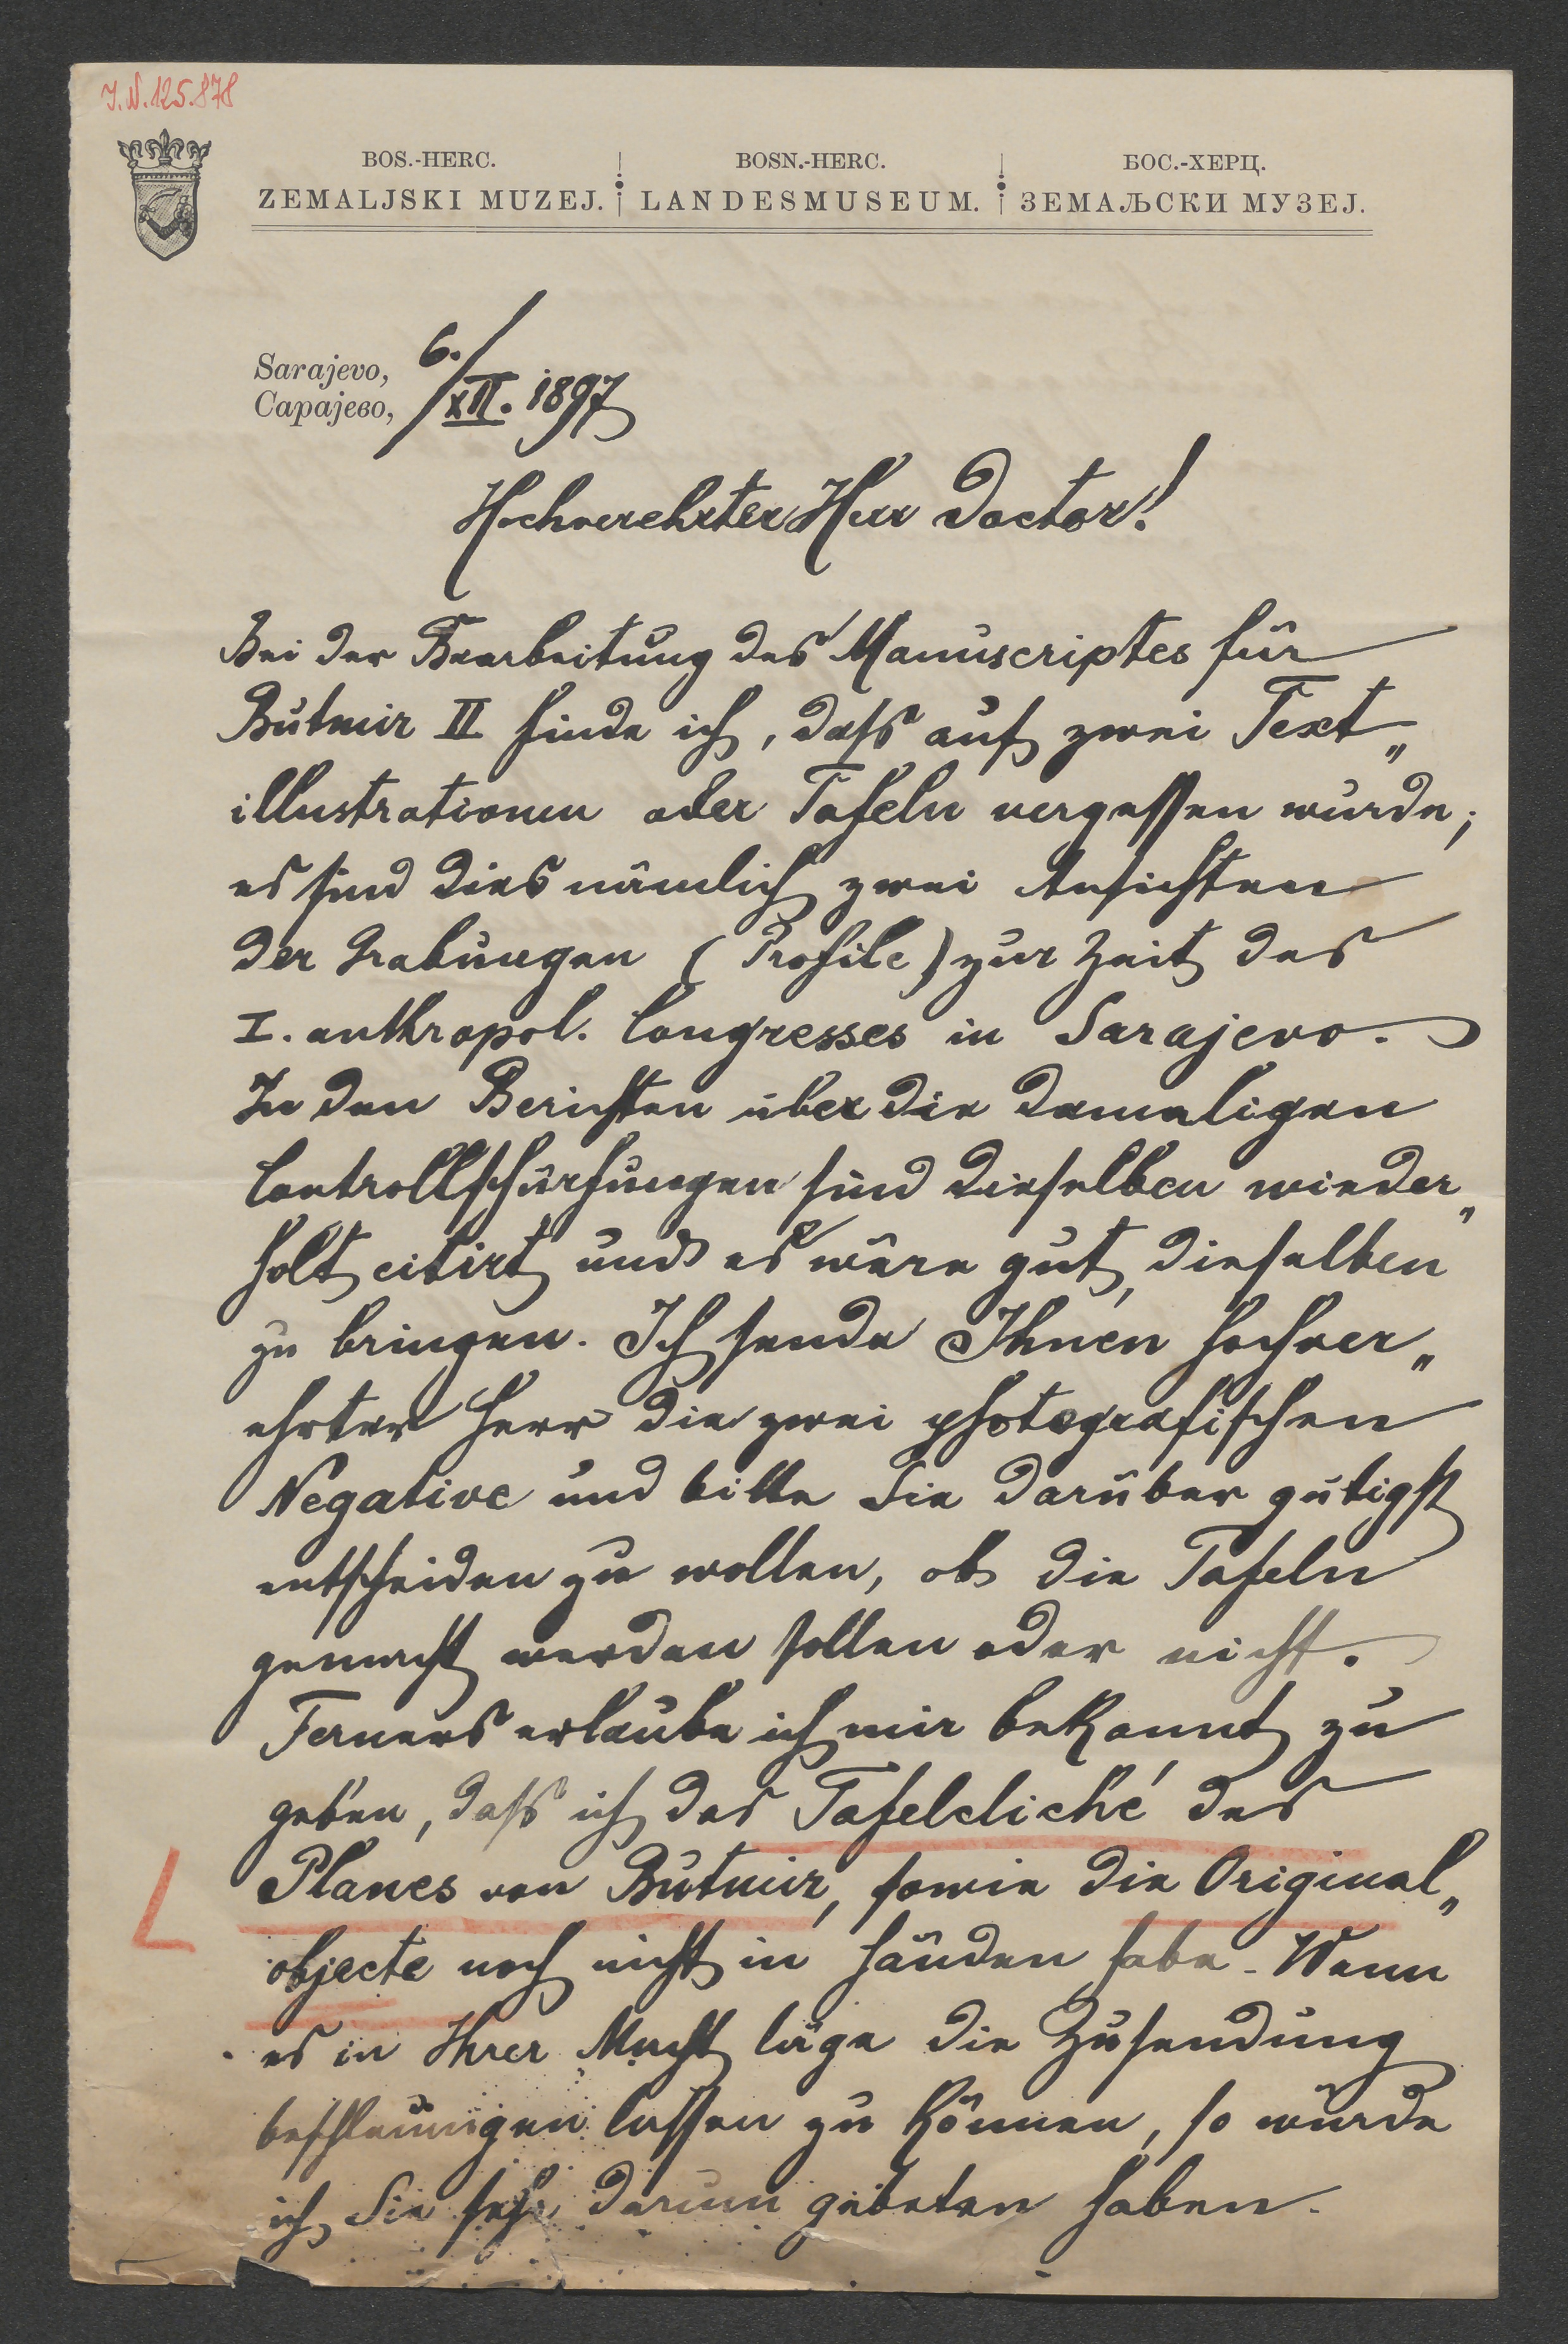 I.N. 125.878
BOS.-HERC.
ZEMALJSKI MUZEJ.
BOSN.-HERC.
LANDESMUSEUM.
БОС.-ХЕРЦ.
ЗЕМАЉСКИ МУЗЕЈ.
Sarajevo, 6./XII. 1897
Сарајево,
Hochverehrter Herr Doctor!
Bei der Bearbeitung des Manuscriptes für
Butmir II finde ich, daß auf zwei Text„
illustrationen oder Tafeln vergessen wurde;
es sind dies nämlich zwei Ansichten
der Grabungen (Profile) zur Zeit des
I. anthropol. Congresses in Sarajevo.
In den Berichten über die damaligen
Controllschürfungen sind dieselben wieder„
holt citirt und es wäre gut, dieselben
zu bringen. Ich sende Ihnen hochver„
ehrter Herr die zwei photografischen
Negative und bitte Sie darüber gütigst
entscheiden zu wollen, ob die Tafeln
gemacht werden sollen oder nicht.
Ferners erlaube ich mir bekannt zu
geben, daß ich das Tafelcliché des
Planes von Butmir, sowie die Original„
objecte noch nicht in Händen habe. Wenn
es in Ihrer Macht läge die Zusendung
beschleunigen lassen zu können, so würde
ich Sie sehr darum gebeten haben.